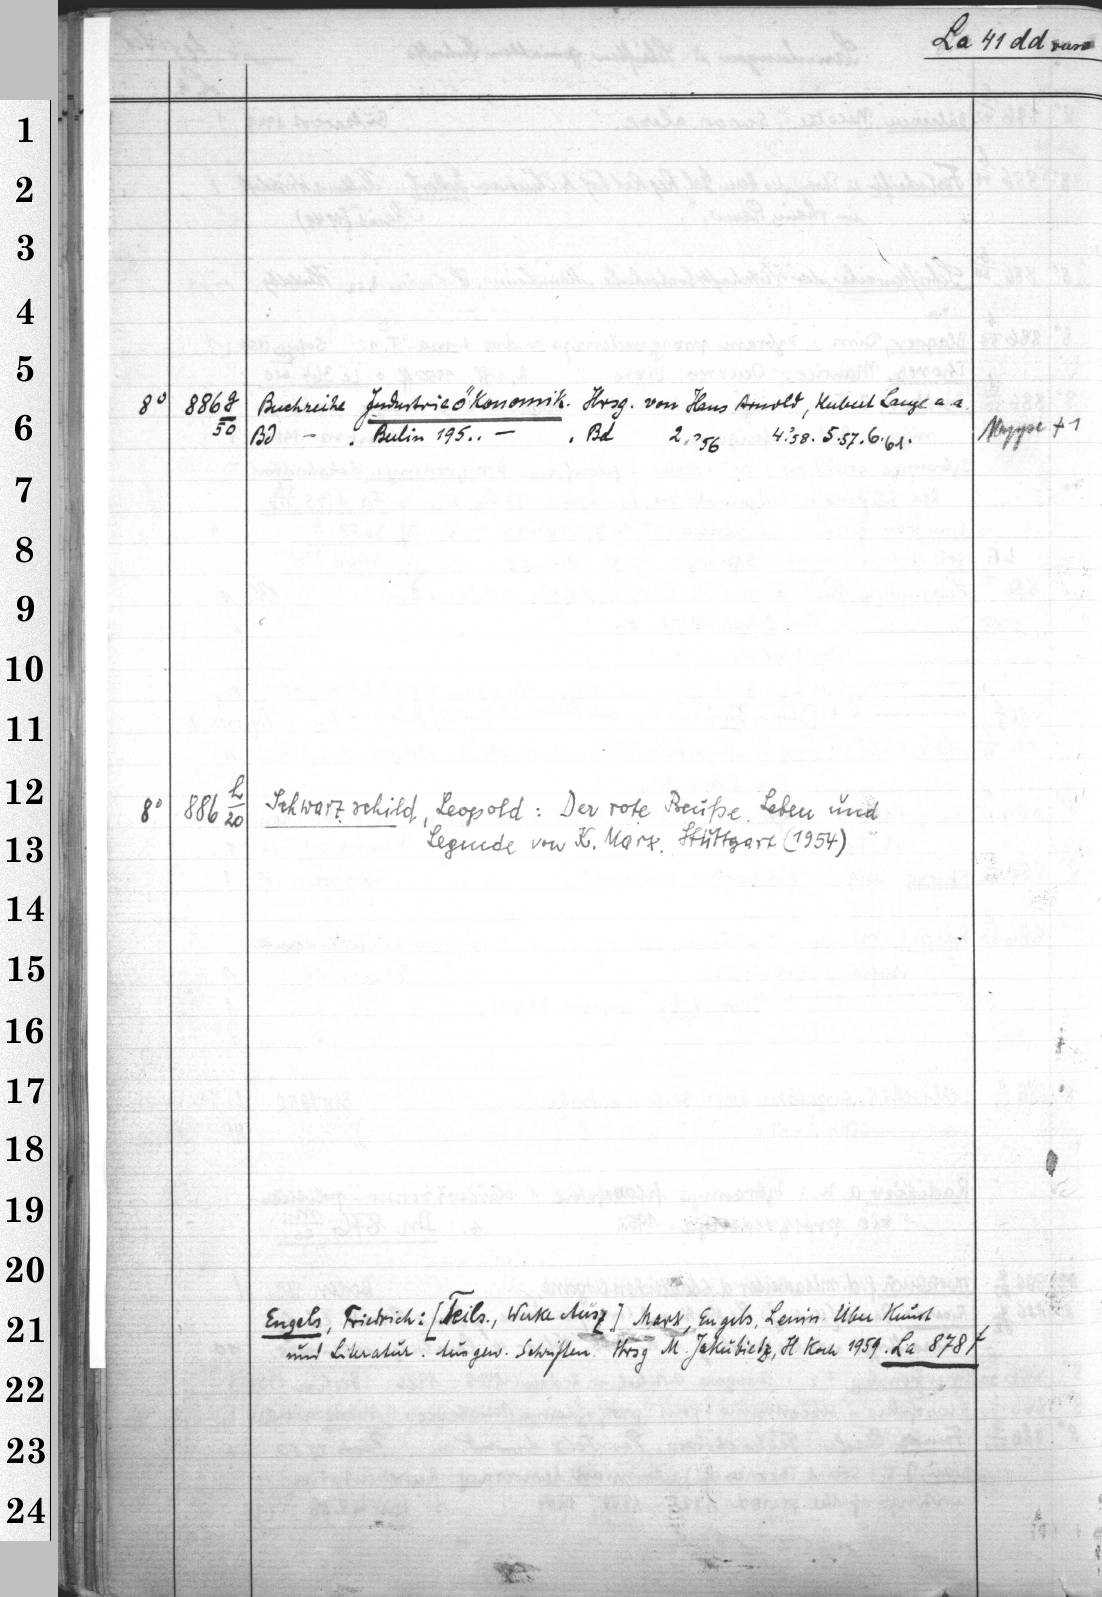 La 41 dd
1
2
3
4
5
8° 886 g/50 Buchreihe Industrieökonomik. Hrsg. von Hans Arnold, Hubert Lange u. a.
6
Bd – . Berlin 195.. – . Bd 2.²56 4.²58. 5.57. 6.61. Mappe + 1
7
8
9
10
11
12
8° 886 h/20 Schwarzschild, Leopold: Der rote Preuße. Leben und
13
Legende von K. Marx. Stuttgart (1954)
14
15
16
17
18
19
20
21
Engels, Friedrich: [Teils., Werke Ausz] Marx, Engels, Lenin Über Kunst
und Literatur. Ausgew. Schriften. Hrsg M. Jakubietz, H Koch 1959. La 878 f
22
23
24